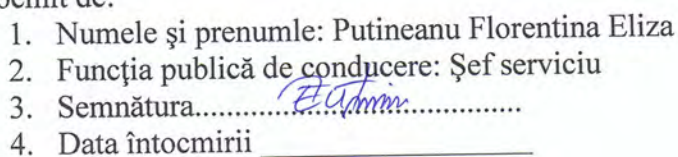 1. Numele şi prenumle: Putineanu Florentina Eliza
2. Funcţia publică de conducere: Şef serviciu
3. Semnătura..........................................
4. Data întocmirii ____________________